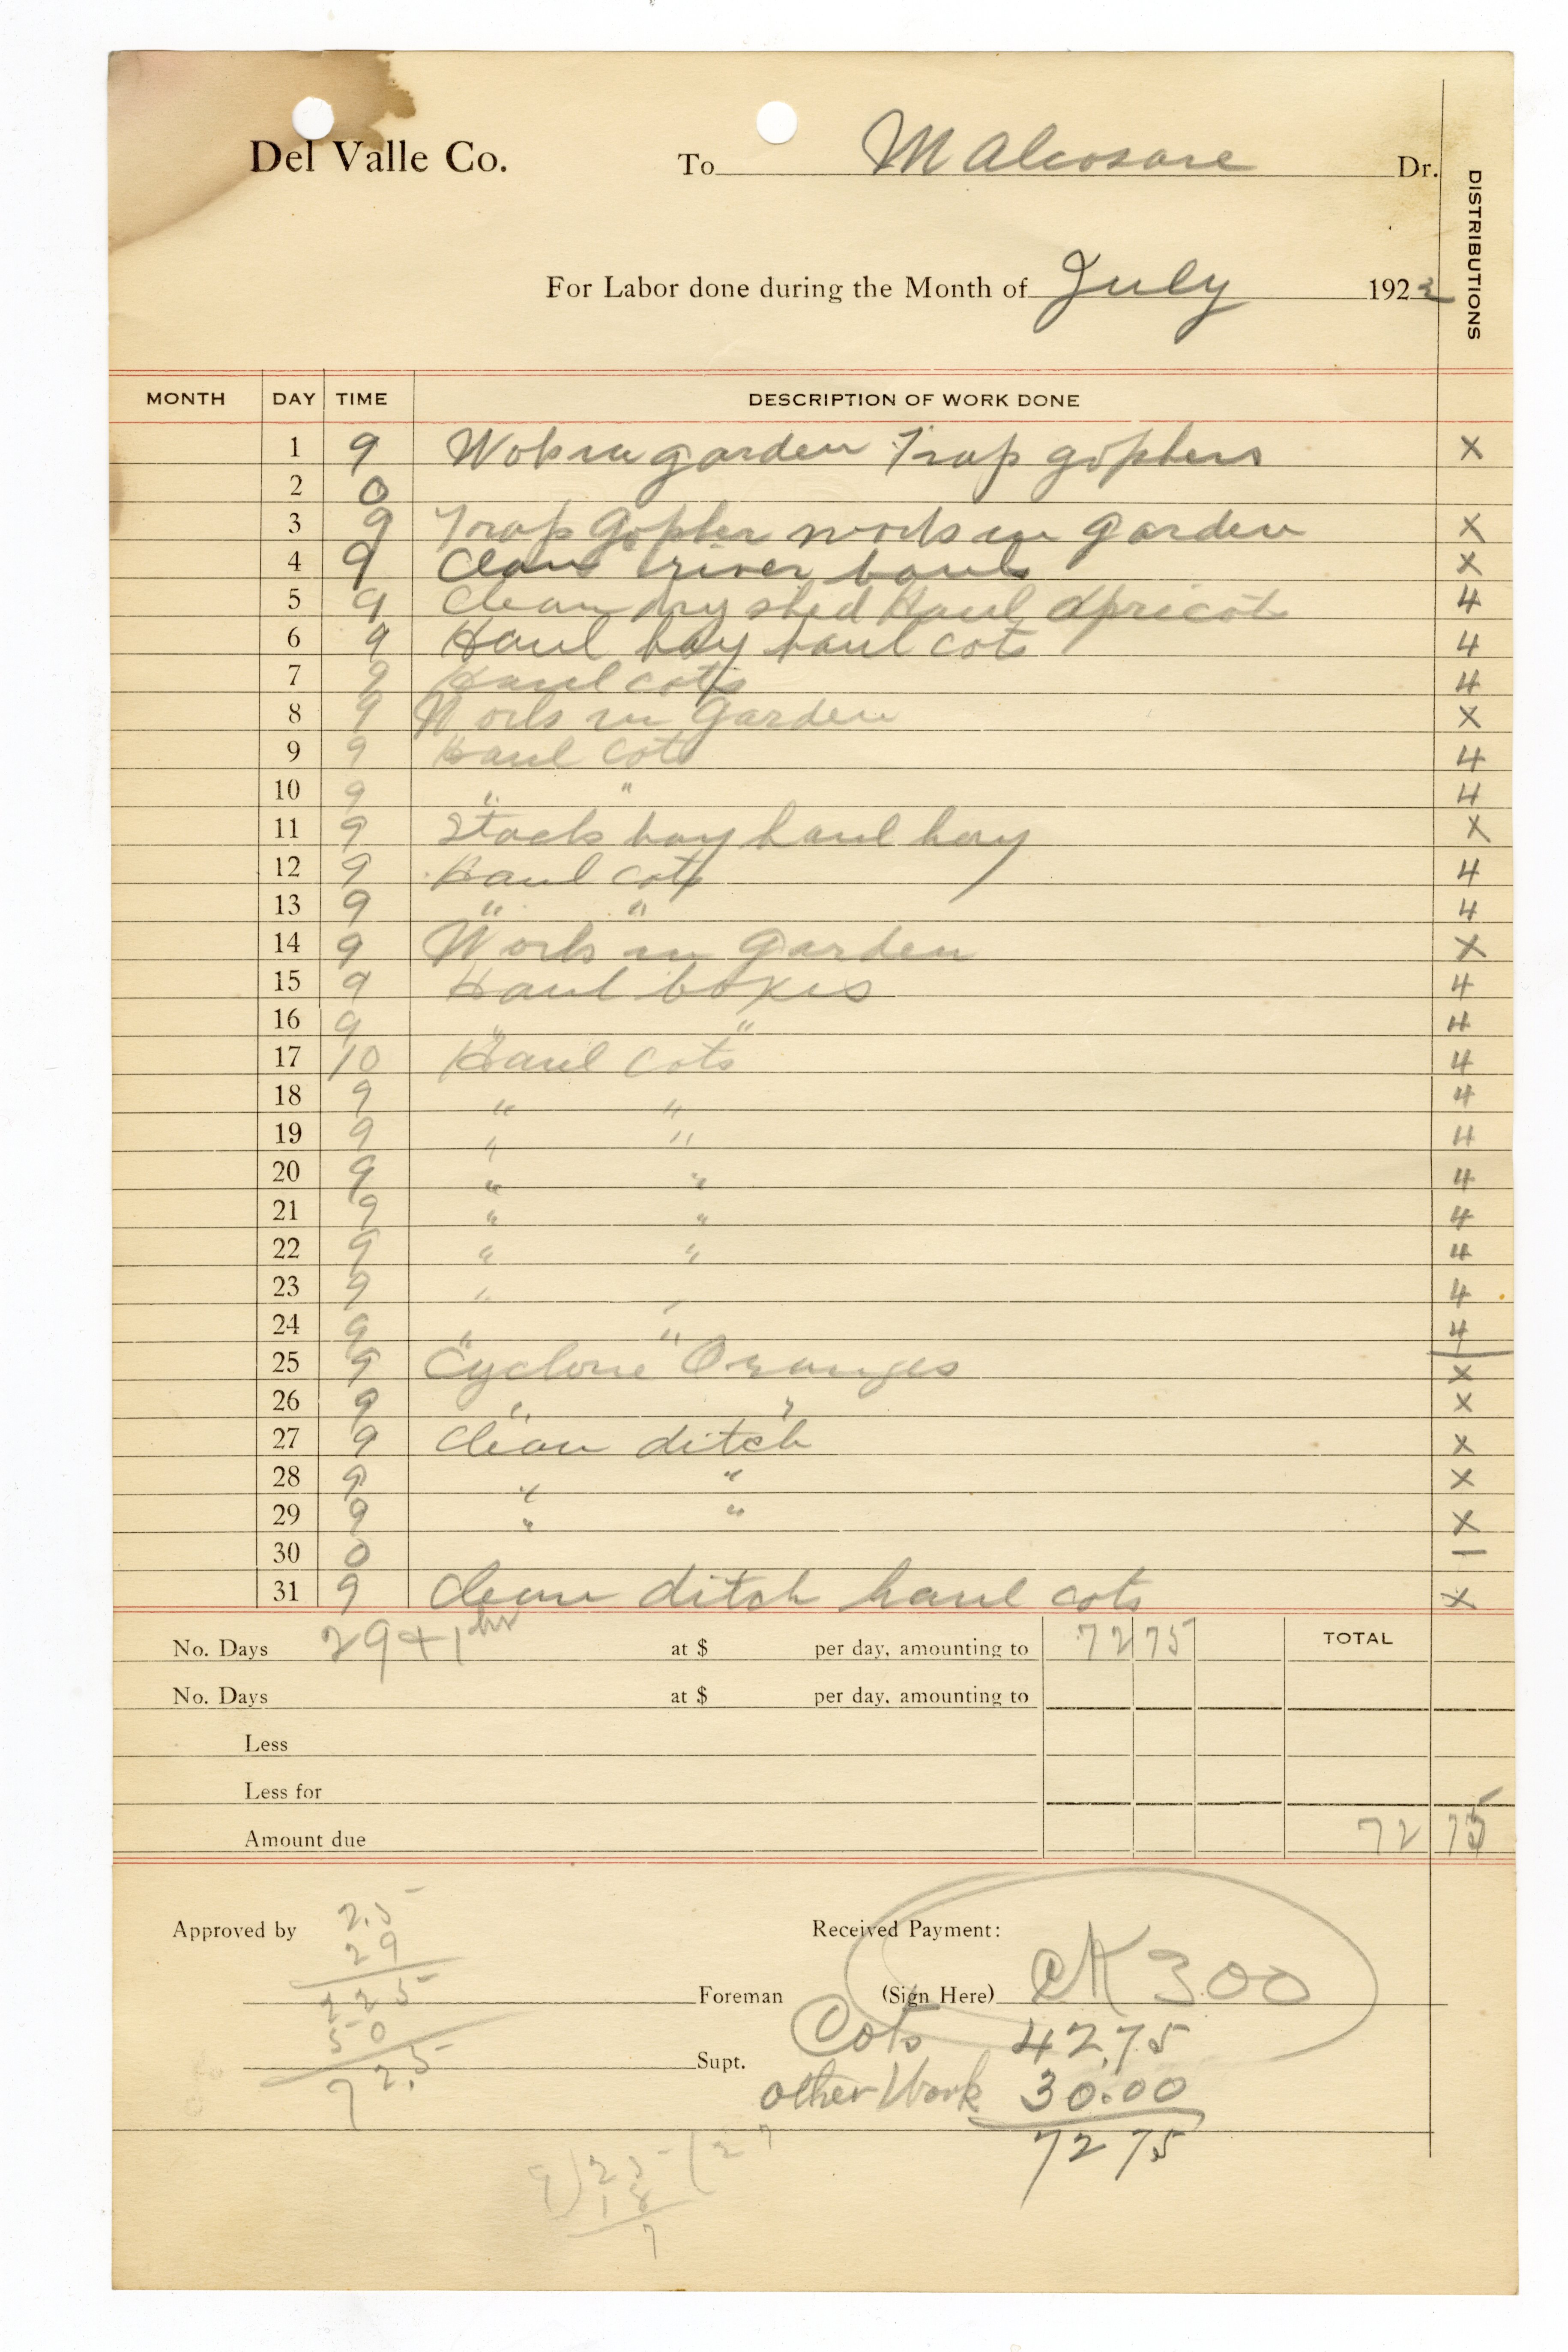 Del Valle Co. To M Alcosare Dr.
DISTRIBUTIONS
For Labor done during the Month of July 1922
MONTH DAY TIME DESCRIPTION OF WORK DONE
1 9 Wok in garden Trap gophers X
2 0
3 9 Trap Gopher work in garden X
4 9 Clean river X
5 9 Clean dry shed Haul Apricot 4
6 9 Haul hay haul cots 4
7 9 Haul cots 4
8 9 Work in Garden X
9 9 Haul Cots 4
10 9 " " 4
11 9 Stack hay haul hay X
12 9 Haul cots 4
13 9 " " 4
14 9 Work in Garden X
15 9 Haul boxes 4
16 9 " " 4
17 10 Haul Cots 4
18 9 " " 4
19 9 " " 4
20 9 " " 4
21 9 " " 4
22 9 " " 4
23 9 " " 4
24 9 " " 4
25 9 Cyclone Oranges X
26 9 " " X
27 9 Clean ditch X
28 9 " " X
29 9 " " X
30 0 –
31 9 Clean ditch haul cots X
No. Days 29 + 1 hr at $ per day, amounting to 72 75 TOTAL
No. Days at $ per day, amounting to
Less
Less for
Amount due 72 75
Approved by 2.5 Received Payment:
29
225 Foreman (Sign Here) CK 300
50 Cots 42.75
72.5 Supt. other Work 30.00
72 75
9)25(27
18
7